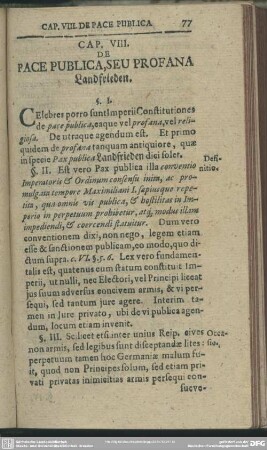 CAP. VIII. DE PACE PUBLICA. 77
CAP. VIII.
DE
PACE PUBLICA, SEU PROFANA
Landfrieden.
§. I.
CElebres porro sunt Imperii Constitutiones
de pace publica, eaque vel profana, vel reli-
giosa. De utraque agendum est. Et primo
quidem de profana tanquam antiquiore, quæ
in specie Pax publica Landfrieden dici solet.
§. II. Est vero Pax publica illa conventio
Defi-
nitio.
Imperatoris & Ordinum consensu inita, ac pro-
mulg. in tempore Maximiliani I. sæpiusque repe-
tita, qua omnis vis publica, & hostilitas in Im-
perio in perpetuum prohibetur, atq; modus illam
impediendi, & coercendi statuitur. Dum vero
conventionem dixi, non nego, legem etiam
esse & sanctionem publicam, eo modo, quo di-
ctum supra. c. VI. §. 5. 6. Lex vero fundamen-
talis est, quatenus cum statum constituit Im-
perii, ut nulli, nec Electori, vel Principi liceat
jus suum adversus convivem armis, & vi per-
sequi, sed tantum jure agere. Interim ta-
men in Jure privato, ubi de vi publica agen-
dum, locum etiam invenit.
§. III. Scilicet etsi inter unius Reip. cives
Occa-
sio.
non armis, sed legibus sint disceptandæ lites:
perpetuum tamen hoc Germaniæ malum fu-
it, quod non Principes solum, sed etiam pri-
vati privatas inimicitias armis persequi con-
sueve-